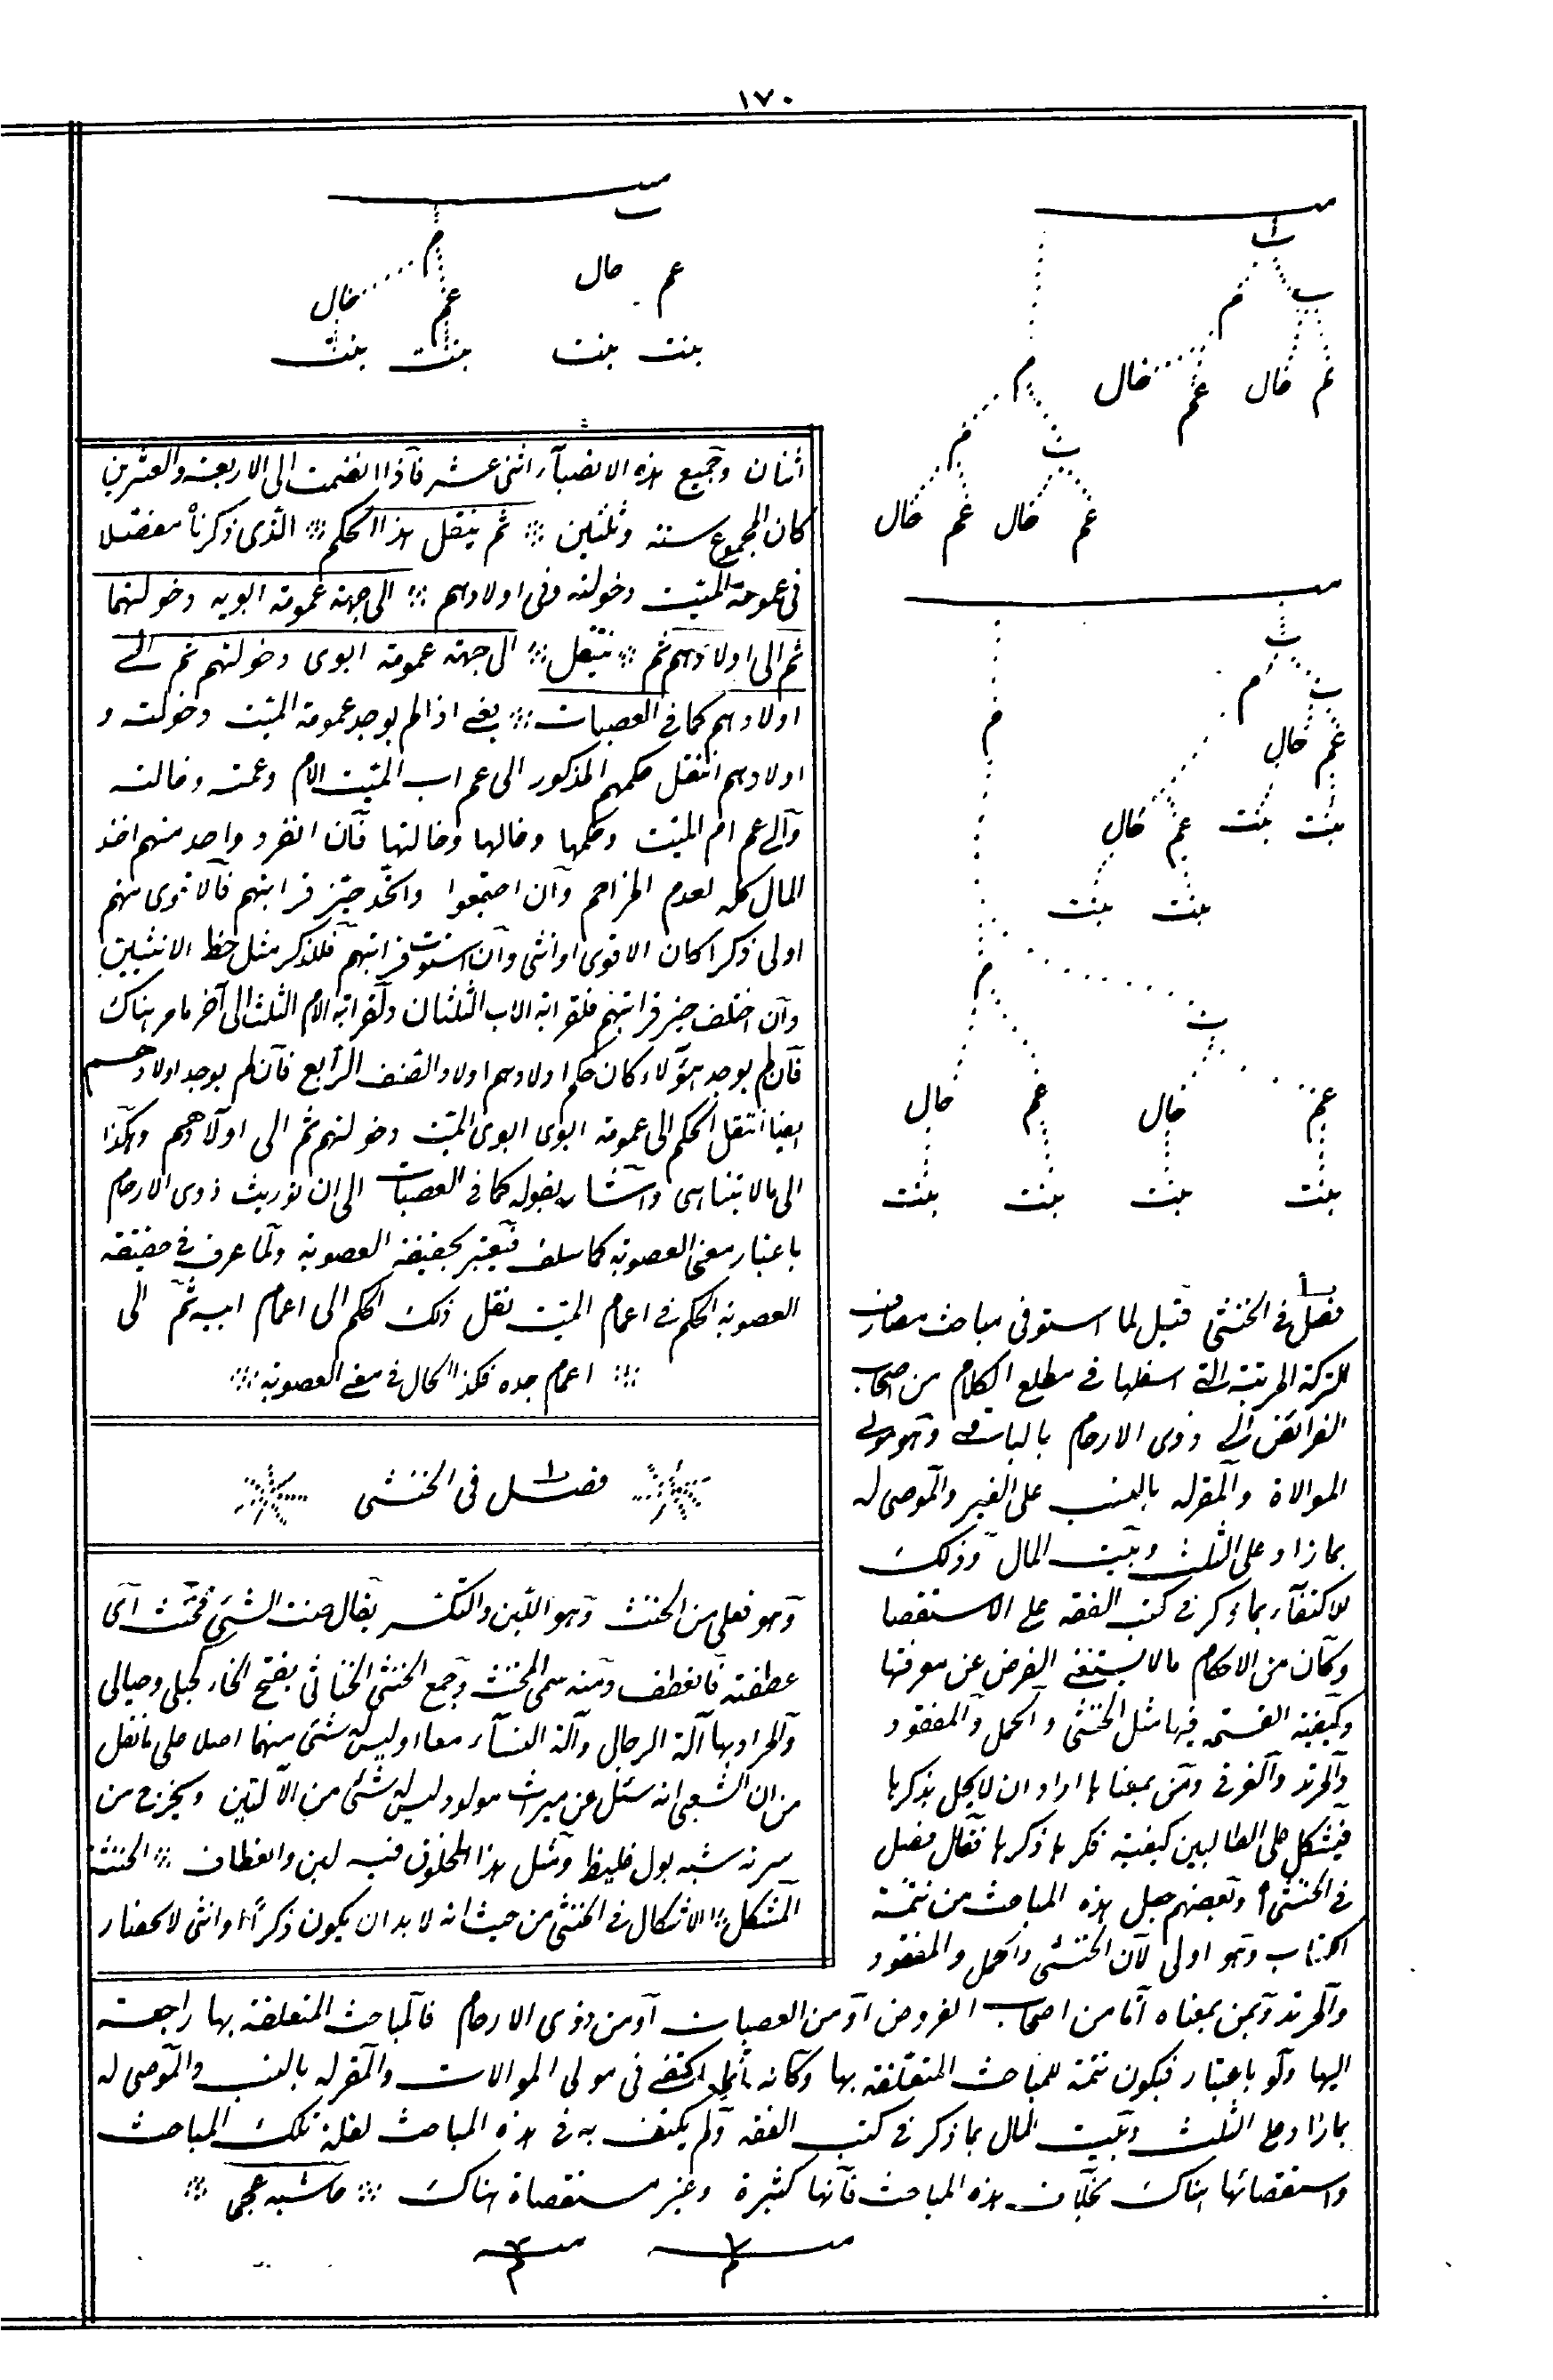 ١٧٠
ميت
اب
اب
ام
عم خال
عم خال
ام
اب
ام
عم خال
عم خال
ميت
اب
اب
ام
عم خال
بنت بنت
عم خال
بنت بنت
ام
ام
اب
عم خال
عم خال
بنت بنت
بنت بنت
ميت
ام
عم خال
عم خال
بنت بنت
بنت بنت
اثنان وجميع هذه الانصبآء اثنى عشر فآذا انضمت الى الاربعة والعشرين
كان المجموع ستة وثلثين ثم ينتقل هذا الحكم الذى ذكرناه مفصلا
فى عمومة الميت وخولته وفى اولادهم الى جهة عمومة ابويه وخولتهما
ثم الى اولادهم ثم ينتقل الى جهة عمومة ابوى وخولتهم ثم الى
اولادهم كما فى العصبات يعنى اذا لم يوجد عمومة الميت وخولته و
اولادهم انتقل حكمهم المذكور الى عم اب الميت الام وعمته وخالته
وآلى عم ام الميت وعمها وخالها وخالتها فآن انفرد واحد منهم اخذ
المال كله لعدم المزاحم وآن اجتمعوا واتحد حيز قرابتهم فآلاقوى منهم
اولى ذكرا كان الاقوى او انثى وآن استوت قرابتهم فللذكر مثل حظ الانثيين
وآن اختلف حيز قرابتهم فلقرابة الاب الثلثان ولقرابة الام الثلث الى آخر ما مر هناك
فآن لم يوجد هؤلاء كان حكم اولادهم اولاد الصنف الرابع فآن لم يوجد اولادهم
ايضا انتقل الحكم الى عمومة ابوى ابوى الميت وخولتهم ثم الى اولادهم وهكذا
الى مالا يتناهى واشار بقوله كما فى العصبات الى ان توريث ذوى الارحام
باعتبار معنى العصوبة كما سلف فيعتبر بحقيقة العصوبة ولما عرف فى حقيقة
العصوبة الحكم فى اعمام الميت نقل ذلك الحكم الى اعمام ابيه ثم الى
اعمام جده فكذا الحال فى معنى العصوبة
فصل فى الخنثى
وهو فعلى من الخنث وهو اللين والتكسر يقال خنث الشئ فتخنث آى
عطفته فآنعطف ومنه سمى المخنث وجمع الخنثى الخناثى بفتح الخاء كحبلى وحبالى
والمراد بها آلة الرجال وآلة النسآء معا او ليس له شئ منهما اصلا على ما نقل
من ان الشعبى انه سئل عن ميراث مولود ليس له شئ من الآلتين ويخرج من
سرته شبه بول غليظ ومثل هذا المخلوق فيه لين وانعطاف الخنثى
المشكل الاشكال فى الخنثى من حيث انه لا بد ان يكون ذكرًا او انثى لانحصار
فصل فى الخنثى قيل لما استوفى مباحث مصارف
التركة المرتبة التى اسفلها فى مطلع الكلام من اصحاب
الفرائض الى ذوى الارحام بالباقى وهو مولى
الموالاة والمقر له بالنسب على الغير والموصى له
بما زاد على الثلث وبيت المال وذلك
للاكتفآء بما ذكر فى كتب الفقه على الاستقصا
وكان من الاحكام ما لا يستغنى الفرض عن معرفتها
وكيفية القسمة فيها مثل الخنثى والحمل والمفقود
والمرتد والغرقى ومن بمعناها اراد ان لا يخل بذكرها
فيشكل على الطالبين كيفية فكرها ذكرها فقال فصل
فى الخنثى وبعضهم جعل هذه المباحث من تتمة
الكتاب وهو اولى لآن الخنثى والحمل والمفقود
والمرتد ومن بمعناه آما من اصحاب الفروض آو من العصبات آو من ذوى الارحام فالمباحث المتعلقة بها راجعة
اليها ولو باعتبار فيكون تتمة للمباحث المتعلقة بها وكانه اكتفى فى مولى الموالات والمقر له بالنسب والموصى له
بما زاد على الثلث وبيت المال بما ذكر فى كتب الفقه ولم يكتف به فى هذه المباحث لقلة تلك المباحث
واستقصائها هناك بخلاف هذه المباحث فآنها كثيرة وغير مستقصاة هناك حاشيه عجمى